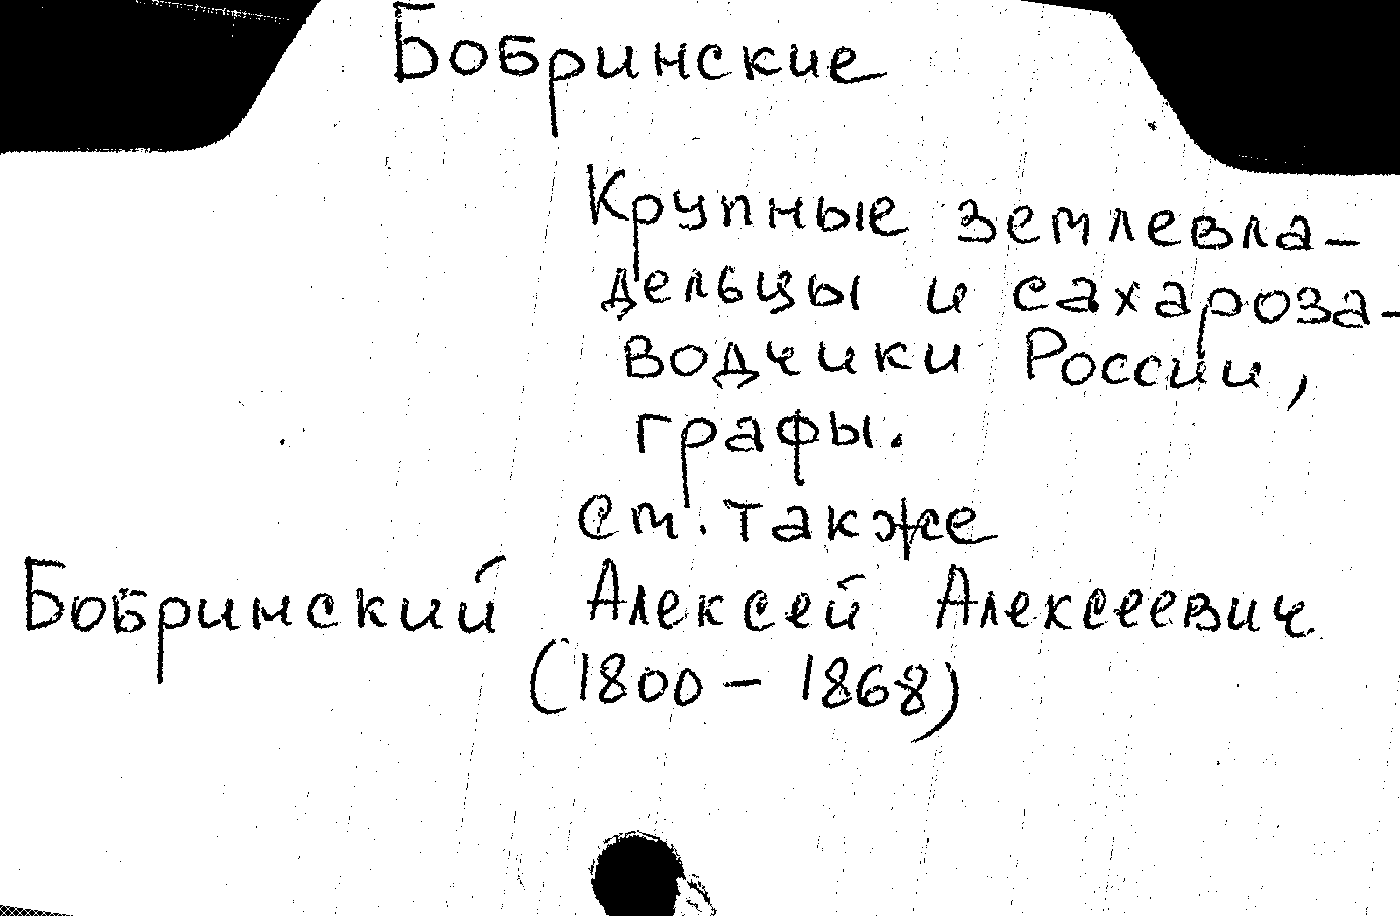 Бобринские
Крупные землевла-
дельцы и сахароза-
водчики России,
графы.
См. также
Бобринский Алексей Алексеевич
(1800 - 1868)